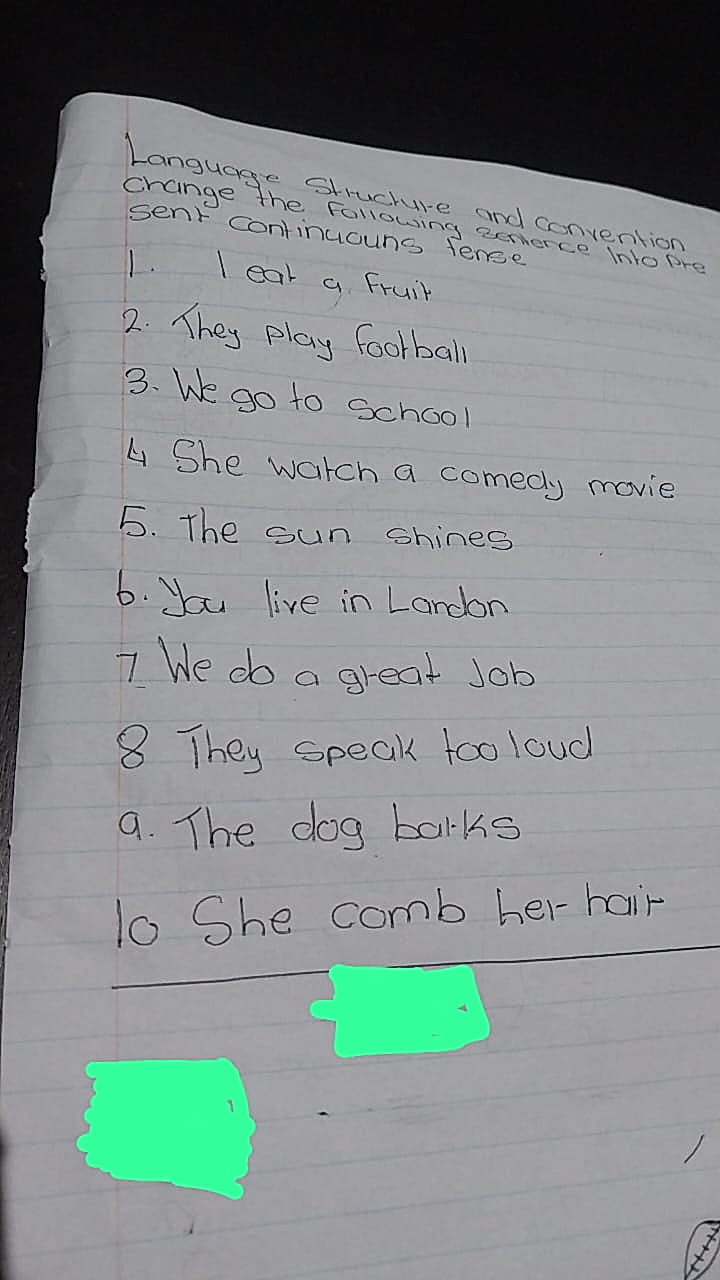 Language Structure and convention
change the following sentence into pre
sent continuouns tense
1. I eat a fruit
2. They play football
3. We go to school
4 She watch a comedy movie
5. The sun shines
6. You live in London
7 We do a great Job
8 They speak too loud
9. The dog barks
10 She comb her hair